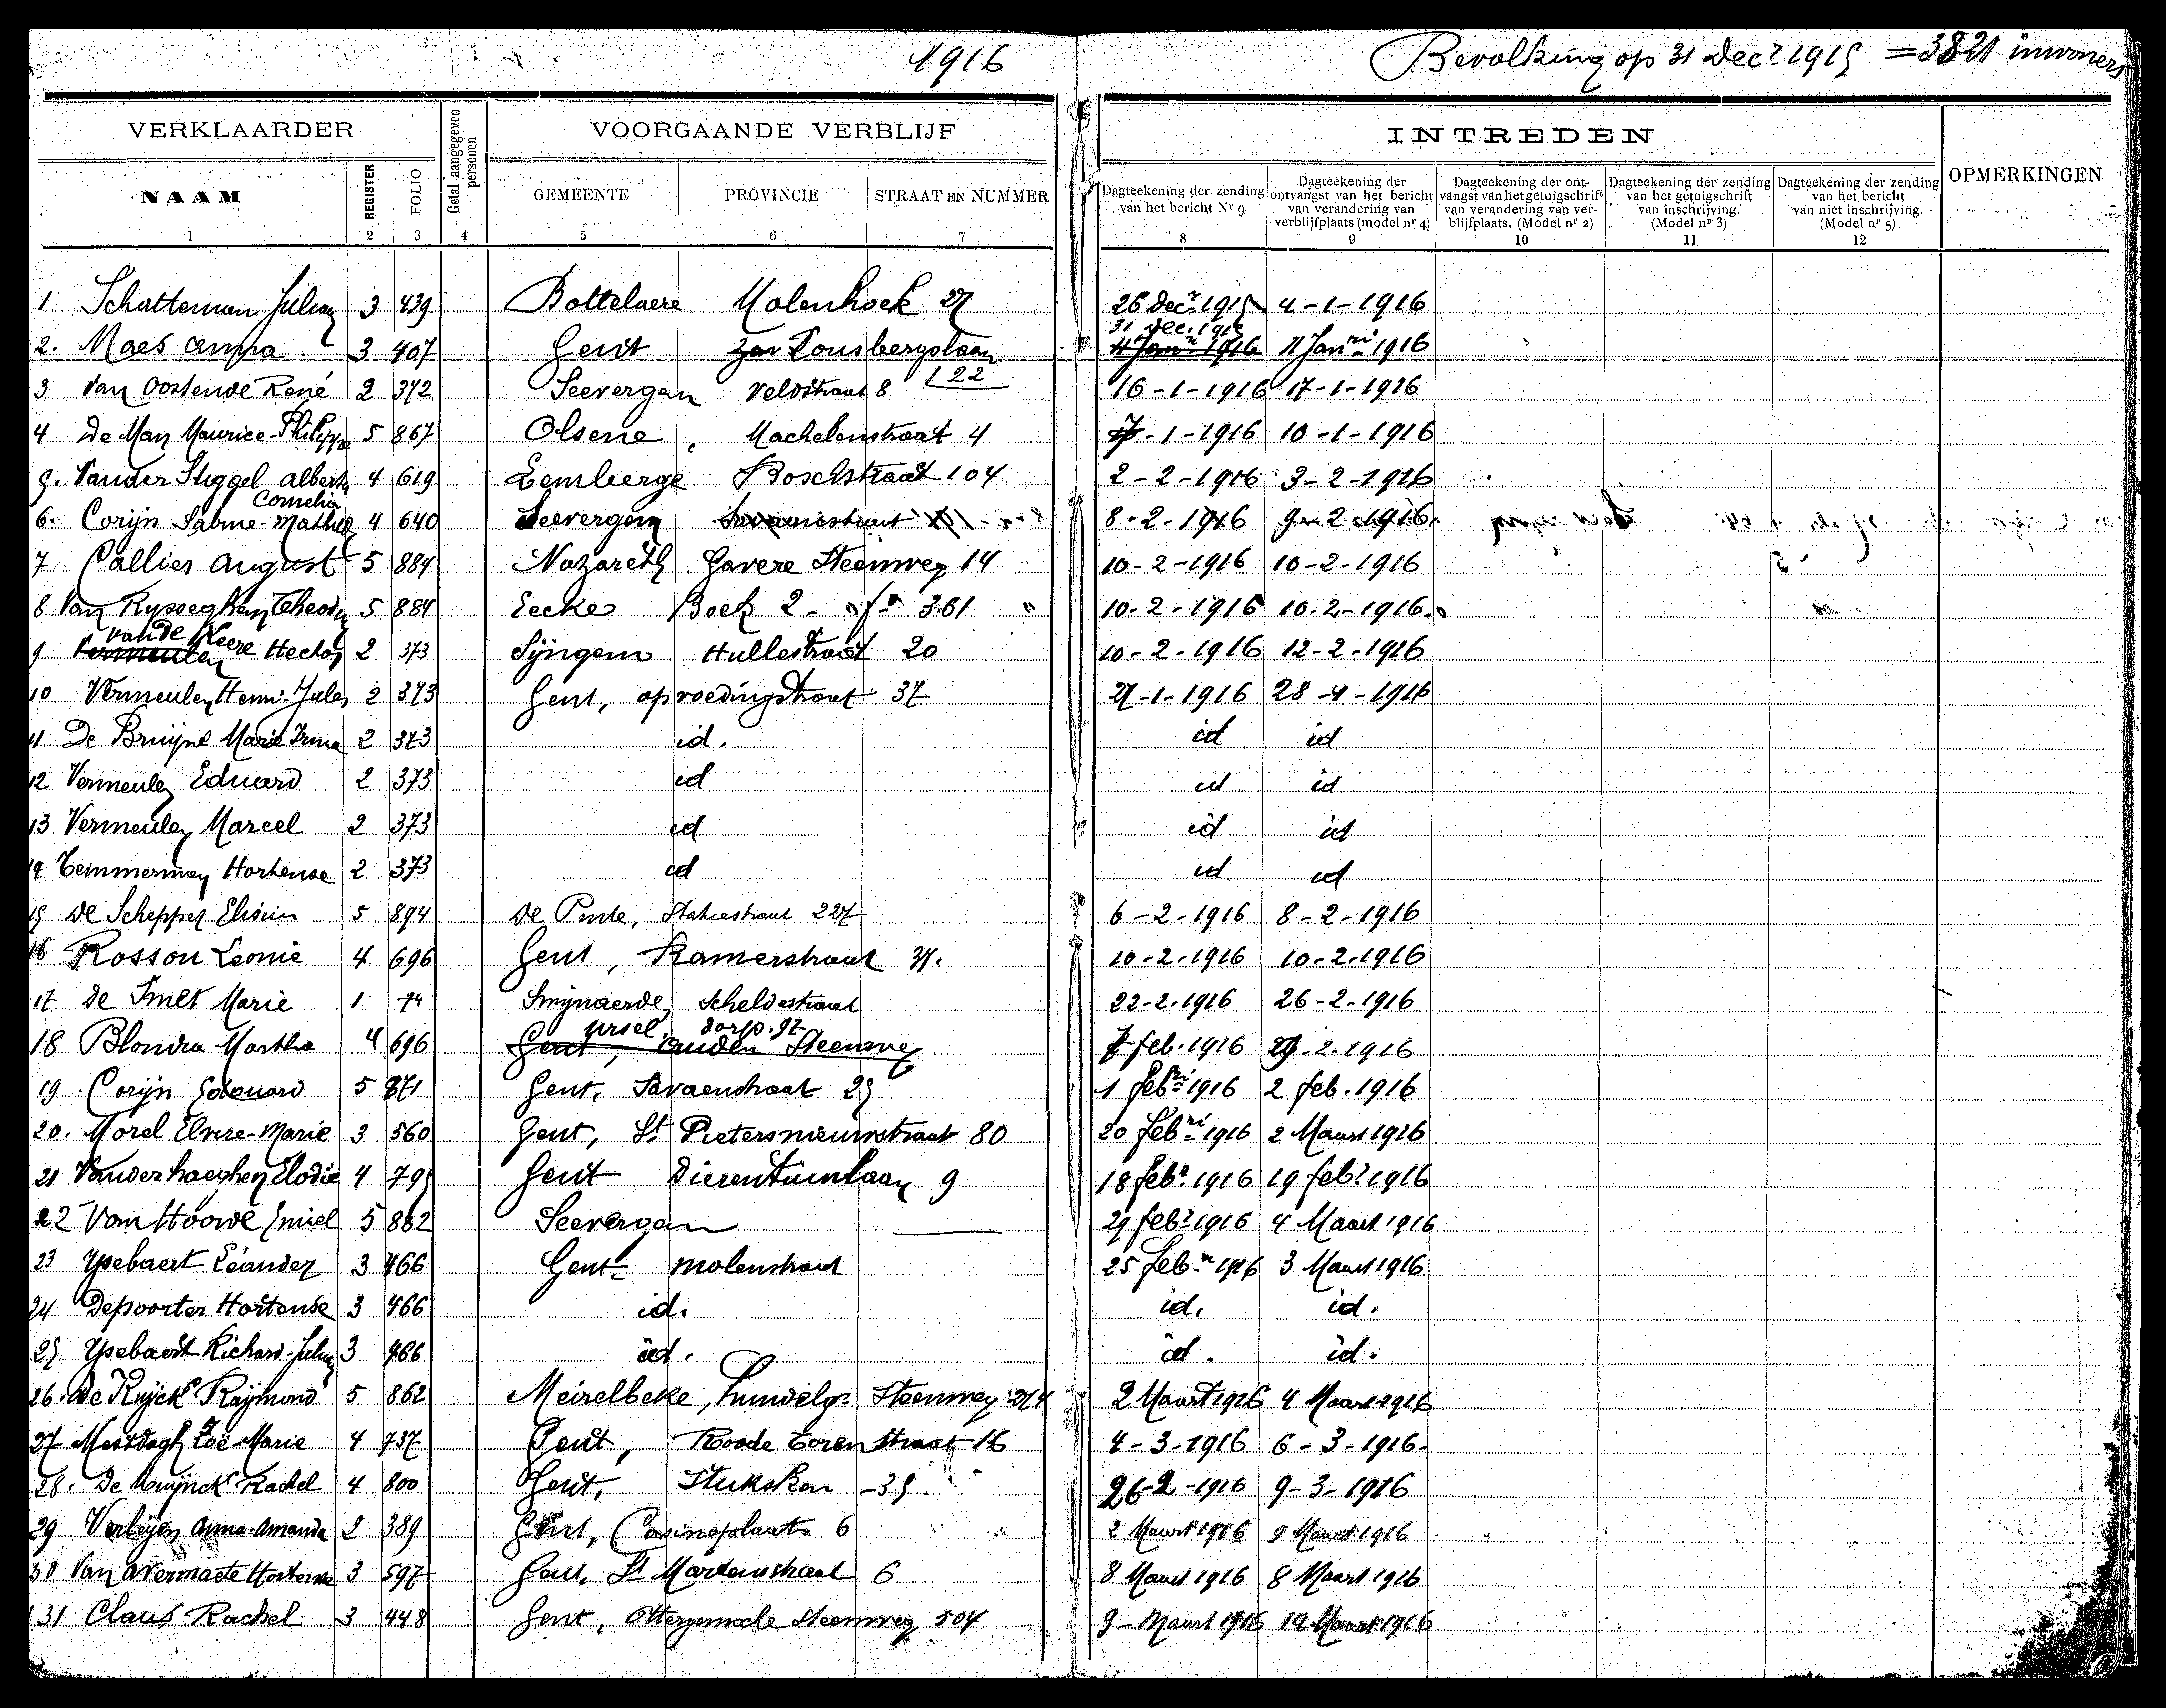 1916
Bevolking op 31 Decr 1915 = 3821 inwoners
VERKLAARDER
Getal aangegeven personen
VOORGAANDE VERBLIJF
INTREDEN
OPMERKINGEN
NAAM
REGISTER
FOLIO
GEMEENTE
PROVINCIE
STRAAT EN NUMMER
Dagteekening der zending van het bericht Nr 9
Dagteekening der ontvangst van het bericht van verandering van verblijfplaats (model nr 4)
Dagteekening der ontvangst van het getuigschrift van verandering van verblijfplaats. (Model nr 2)
Dagteekening der zending van het getuigschrift van inschrijving. (Model nr 3)
Dagteekening der zending van het bericht van niet inschrijving. (Model nr 5)
1 2 3 4 5 6 7 8 9 10 11 12
1 Schatteman 3 439 Bottelaere Molenhoek 27 26 decr 1915 4-1-1916
31 dec. 1915
2. Maes anna 3 407 Gent Lousbergslaan 11 Janri 1916 11 Janri 1916
122
3 Van Oostende René 2 372 Seevergem Veldstraat 8 16-1-1916 17-1-1916
4 De Man Maurice-Philippe 5 867 Olsene, Machelenstraat 4 7-1-1916 10-1-1916
5. Vander Stiggel Albert 4 619 Lemberge Boschstraat 104 2-2-1916 3-2-1916
Cornelia
6. Corijn Sabine-Mathilde 4 640 Seevergem 8-2-1916 9-2-1916.
7 Callier August 5 884 Nazareth Gavere Steenweg 14 10-2-1916 10-2-1916
8 Van Rysseghem Theod 5 884 Eecke Boek 2 - fo 361 10-2-1916 10-2-1916.
vande Keere
9 Vermeulen Hector 2 373 Syngem Hullestraat 20 10-2-1916 12-2-1916
10 Vermeulen Henri-Jules 2 373 Gent, opvoedingstraat 37 27-1-1916 28-1-1916
11 De Bruijne Marie Irma 2 373 id. id id
12 Vermeulen Eduard 2 373 id id id
13 Vermeulen Marcel 2 373 id id id
14 Temmerman Hortense 2 373 id id id
15 De Schepper 5 894 De Pinte, Statiestraat 227 6-2-1916 8-2-1916
16 Rosson Leonie 4 696 Gent, Kramerstraat 37. 10-2-1916 10-2-1916
17 De Smet Marie 1 74 Smijnaerde, Scheldestraat 22-2-1916 26-2-1916
Ursel, dorp. 97
18 Blondia Martha 4 696 Gent, Steenweg 7 feb. 1916 29-2-1916
19. Corijn Edouard 5 871 Gent, Savaenstraat 25 1 febri 1916 2 feb. 1916
20. Morel Elvire-Marie 3 560 Gent, St Pietersnieuwstraat 80 20 Febri 1916 2 Maart 1916
21 Vanderhaeghen Elodie 4 795 Gent Dierentuinlaan 9 18 Febr 1916 19 febr 1916
22 Van Hoove Emiel 5 882 Seevergem 29 febr 1916 4 Maart 1916
23 Ysebaert Léander 3 466 Gent molenstraat 25 Febr 1916 3 Maart 1916
24 Depoorter Hortense 3 466 id. id. id.
25 Ysebaert Richard- 3 466 id. id. id.
26. De Ruyck Raymond 5 862 Meirelbeke, Steenweg 214 2 Maart 1916 4 Maart 1916
27 Mestdagh Zoë-Marie 4 737 Gent, Roode Toren straat 16 4-3-1916 6-3-1916.
28. De Muijnck Rachel 4 800 Gent, Stuksken -35. 26-2-1916 9-3-1916
29 Verleyen Anna-Amanda 2 389 Gent, Casinoplaats 6 2 Maart 1916 9 Maart 1916
30 Van Avermaete Hortense 3 597 Gent, St Martenstraat 6 8 Maart 1916 8 Maart 1916
31 Claus Rachel 3 448 Gent, Ottergemsche Steenweg 504 9 - Maart 1916 14 Maart 1916